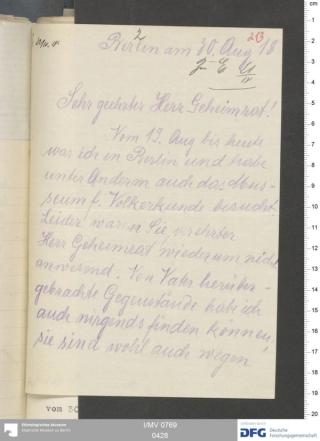 213
Berlin am 30. Aug 18
Sehr geehrter Herr Geheimrat!
Vom 19. Aug bis heute
war ich in Berlin und habe
unter Anderm auch das Mus-
seum f. Völkerkunde besucht.
Leider waren Sie, verehrter
Herr Geheimrat wiederum nicht
anwesend. Von Vater herüber-
gebrachte Gegenstände hab ich
auch nirgends finden können,
sie sind wohl auch wegen
vom 30
Ethnologisches Museum
Staatliche Museen zu Berlin
I/MV 0769
0428
DFG Deutsche
Forschungsgemeinschaft